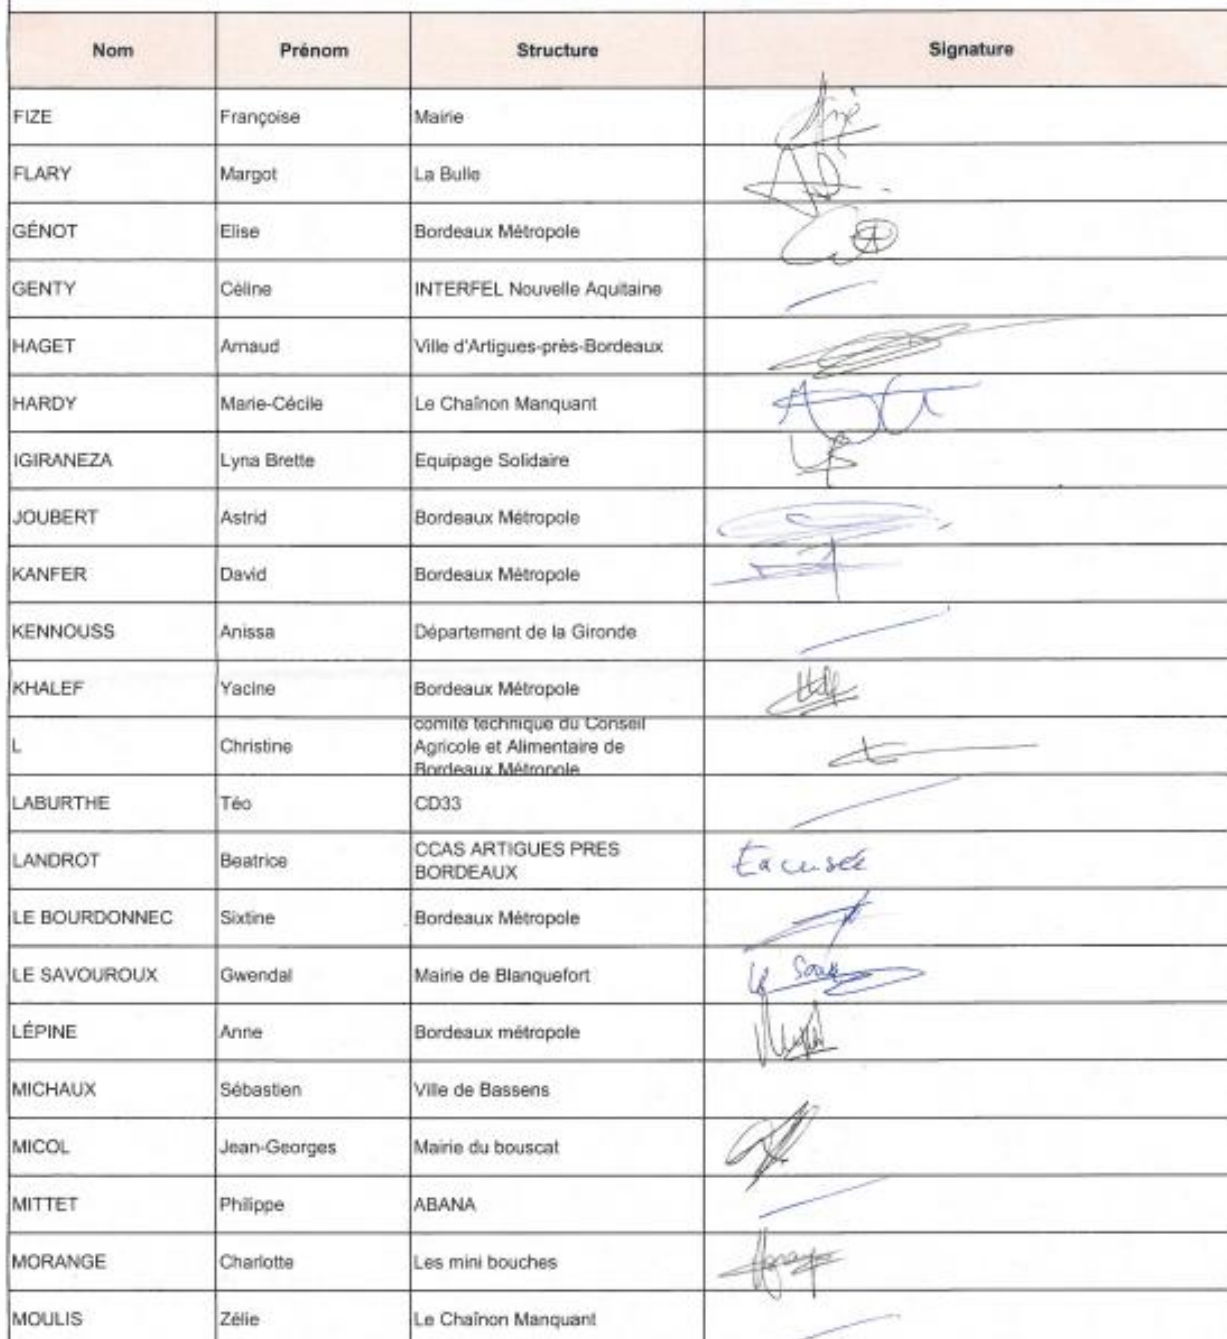 Nom Prénom Structure Signature
FIZE Françoise Mairie
FLARY Margot La Bulle
GÉNOT Elise Bordeaux Métropole
GENTY Céline INTERFEL Nouvelle Aquitaine
HAGET Arnaud Ville d'Artigues-près-Bordeaux
HARDY Marie-Cécile Le Chaînon Manquant
IGIRANEZA Lyna Brette Equipage Solidaire
JOUBERT Astrid Bordeaux Métropole
KANFER David Bordeaux Métropole
KENNOUSS Anissa Département de la Gironde
KHALEF Yacine Bordeaux Métropole
comité technique du Conseil
L Christine Agricole et Alimentaire de
Bordeaux Métropole
LABURTHE Téo CD33
LANDROT Beatrice CCAS ARTIGUES PRES
BORDEAUX
Excusée
LE BOURDONNEC Sixtine Bordeaux Métropole
LE SAVOUROUX Gwendal Mairie de Blanquefort
LÉPINE Anne Bordeaux métropole
MICHAUX Sébastien Ville de Bassens
MICOL Jean-Georges Mairie du bouscat
MITTET Philippe ABANA
MORANGE Charlotte Les mini bouches
MOULIS Zélie Le Chaînon Manquant